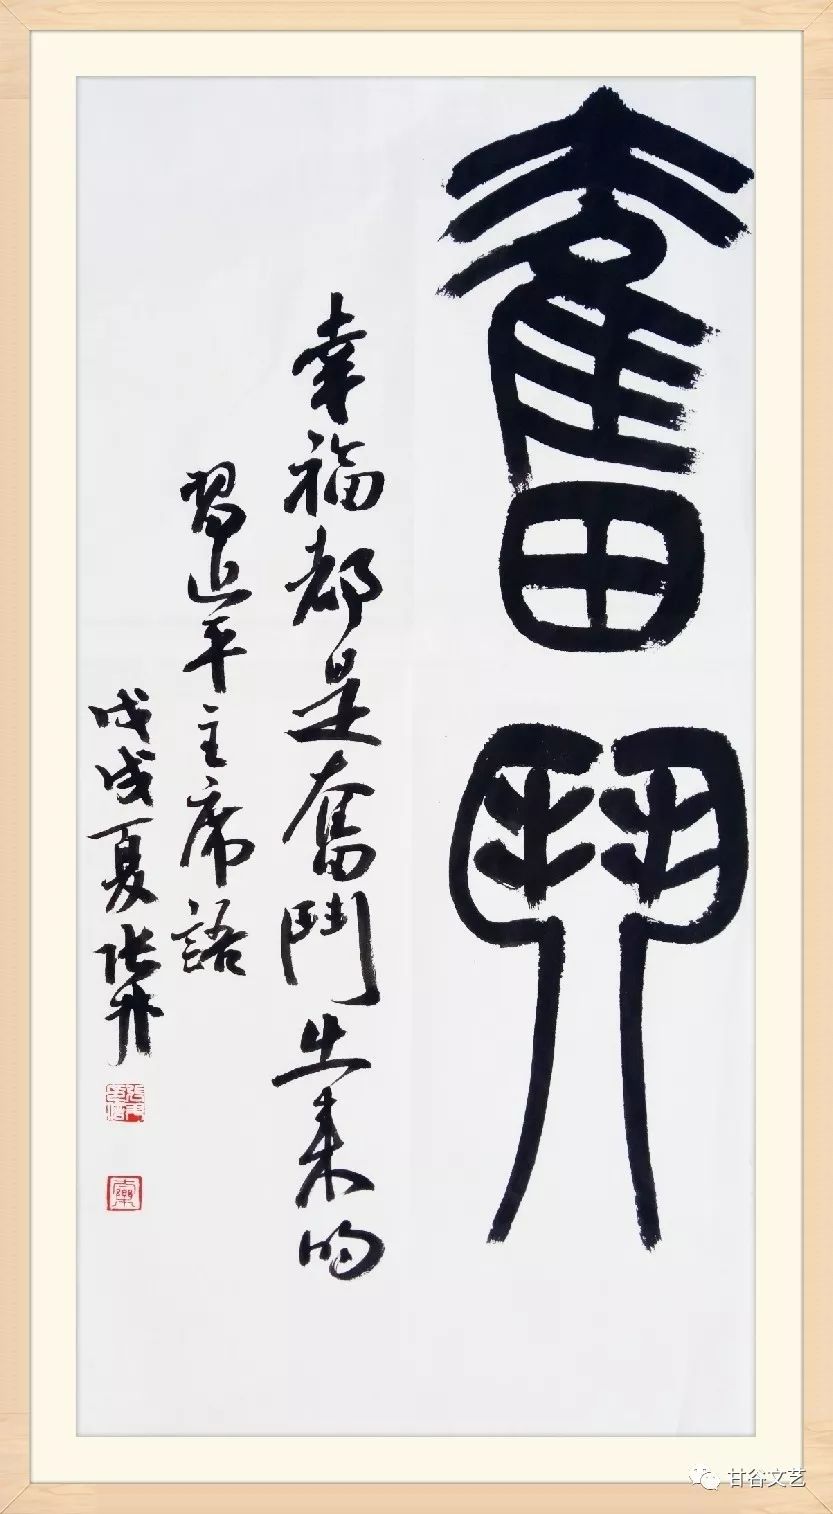 奮鬥
幸福都是奮鬥出来的
習近平主席語
戊戌夏張升
甘谷文艺